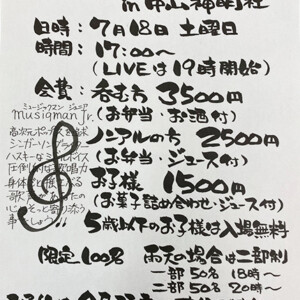 in 中山神明社
日時：7月18日 土曜日
時間：17:00〜
(LIVEは19時開始)
会費：呑む方 3500円
(お弁当・お酒付)
ノンアルの方 2500円
(お弁当・ジュース付)
お子様 1500円
(お菓子詰め合わせ・ジュース付)
5歳以下のお子様は入場無料
限定100名 雨天の場合は二部制
一部50名 18時〜
二部50名 20時〜
ミュージックマン ジュニア
musiqman Jr.
シンガーソング
ハスキーな ボイス
圧倒的な 唱力
身体
歌
心 そっと寄り添う
事 しょう!!!